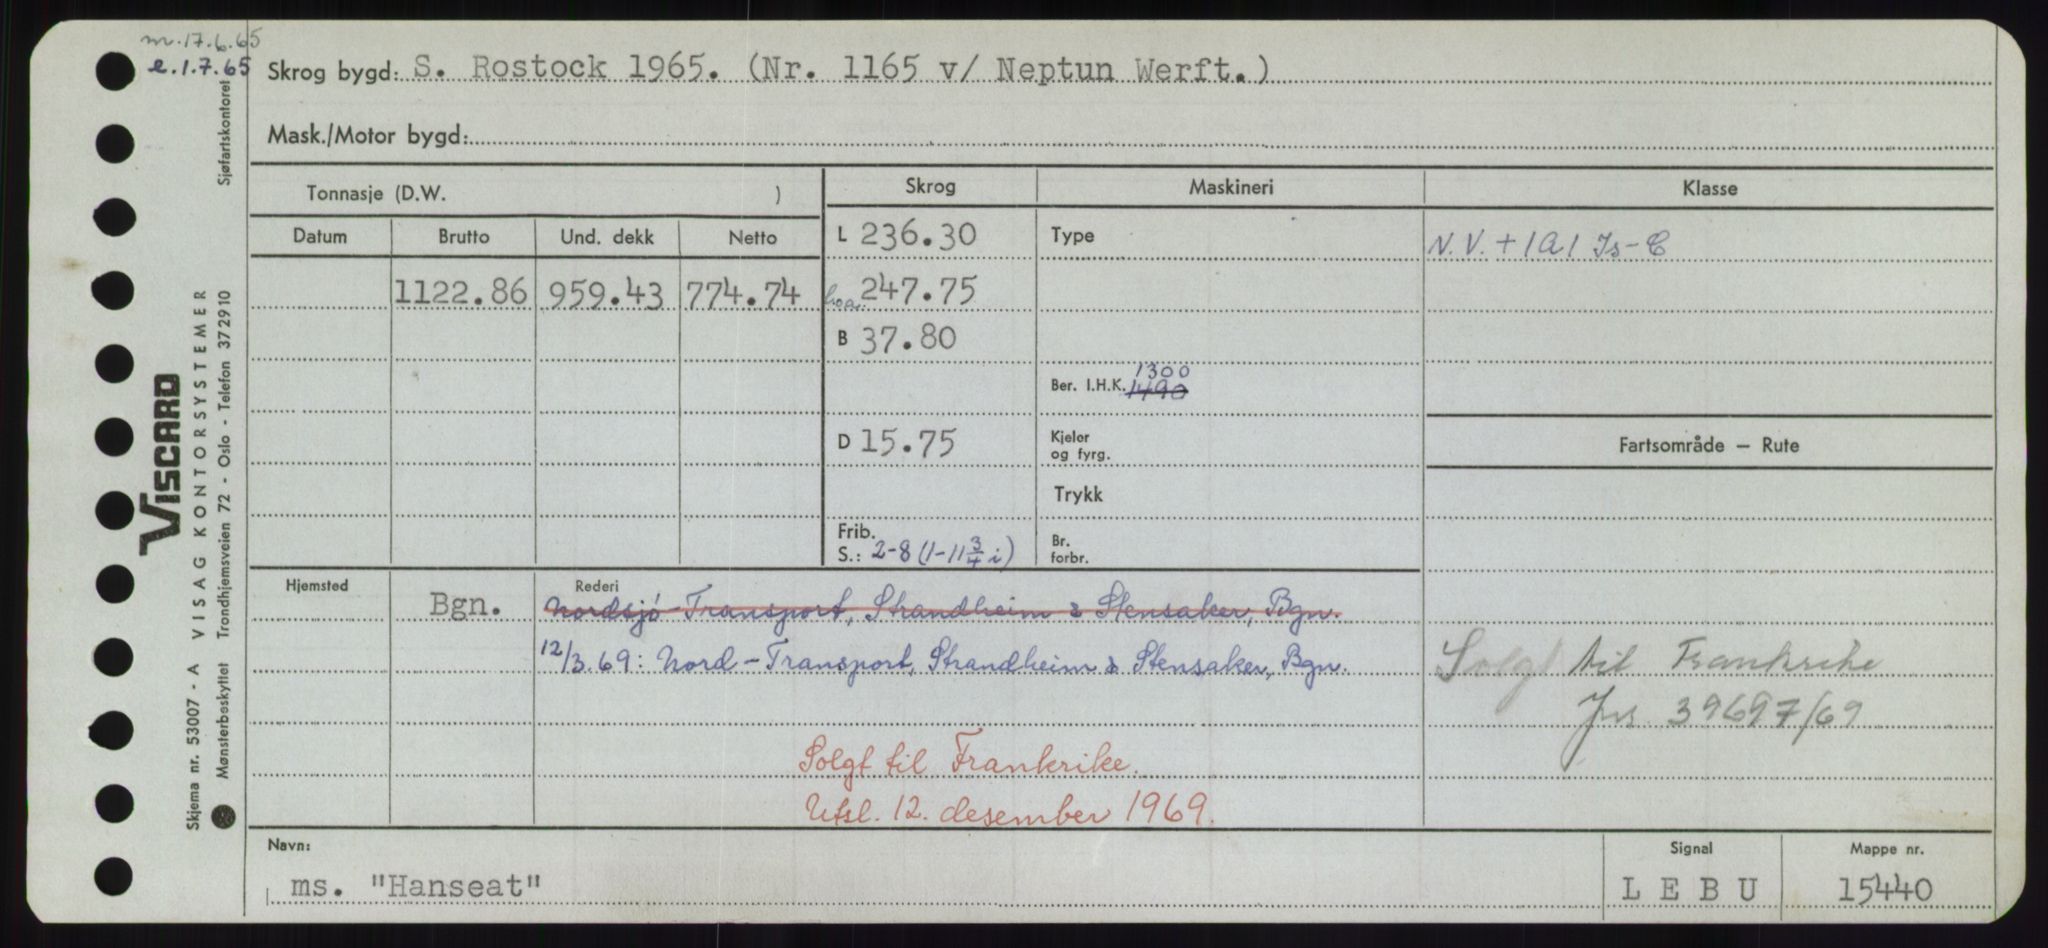 m. 17.6.65
e. 1.7.65
Skrog bygd: S. Rostock 1965. (Nr. 1165 v/ Neptun Werft.)
Mask./Motor bygd:
Tonnasje (D.W. )
Skrog Maskineri Klasse
Datum Brutto Und. dekk Netto
L 236.30 Type N.V. + 1A1 Is-C
1122.86 959.43 774.74 247.75
B 37.80
1300
Ber. I.H.K. 1490
D 15.75 Kjeler og fyrg.
Fartsområde — Rute
Trykk
Frib.
S.: 2-8 (1-11 3/4 i) Br. forbr.
Hjemsted Rederi
Bgn. Nordsjø-Transport, Strandheim & Stensaker, Bgn.
12/3.69: Nord-Transport, Strandheim & Stensaker, Bgn.
Solgt til Frankrike
Jnr. 39697/69
Solgt til Frankrike.
Utsl. 12. desember 1969.
Navn: Signal Mappe nr.
ms. "Hanseat" L E B U 15440
Sjøfartskontoret
VISCARD
VISAG KONTORSYSTEMER
Trondhjemsveien 72 - Oslo - Telefon 372910
Skjema nr. 53007 - A
Mønsterbeskyttet